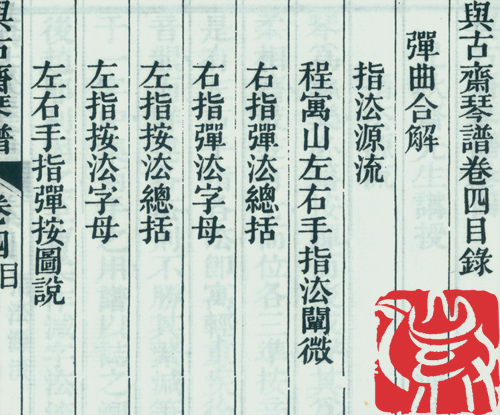 與古齋琴譜卷四目錄
彈曲合解
指法源流
程寓山左右手指法闡微
右指彈法總括
右指彈法字母
左指按法總括
左指按法字母
左右手指彈按圖說
與古齋琴譜
卷四目